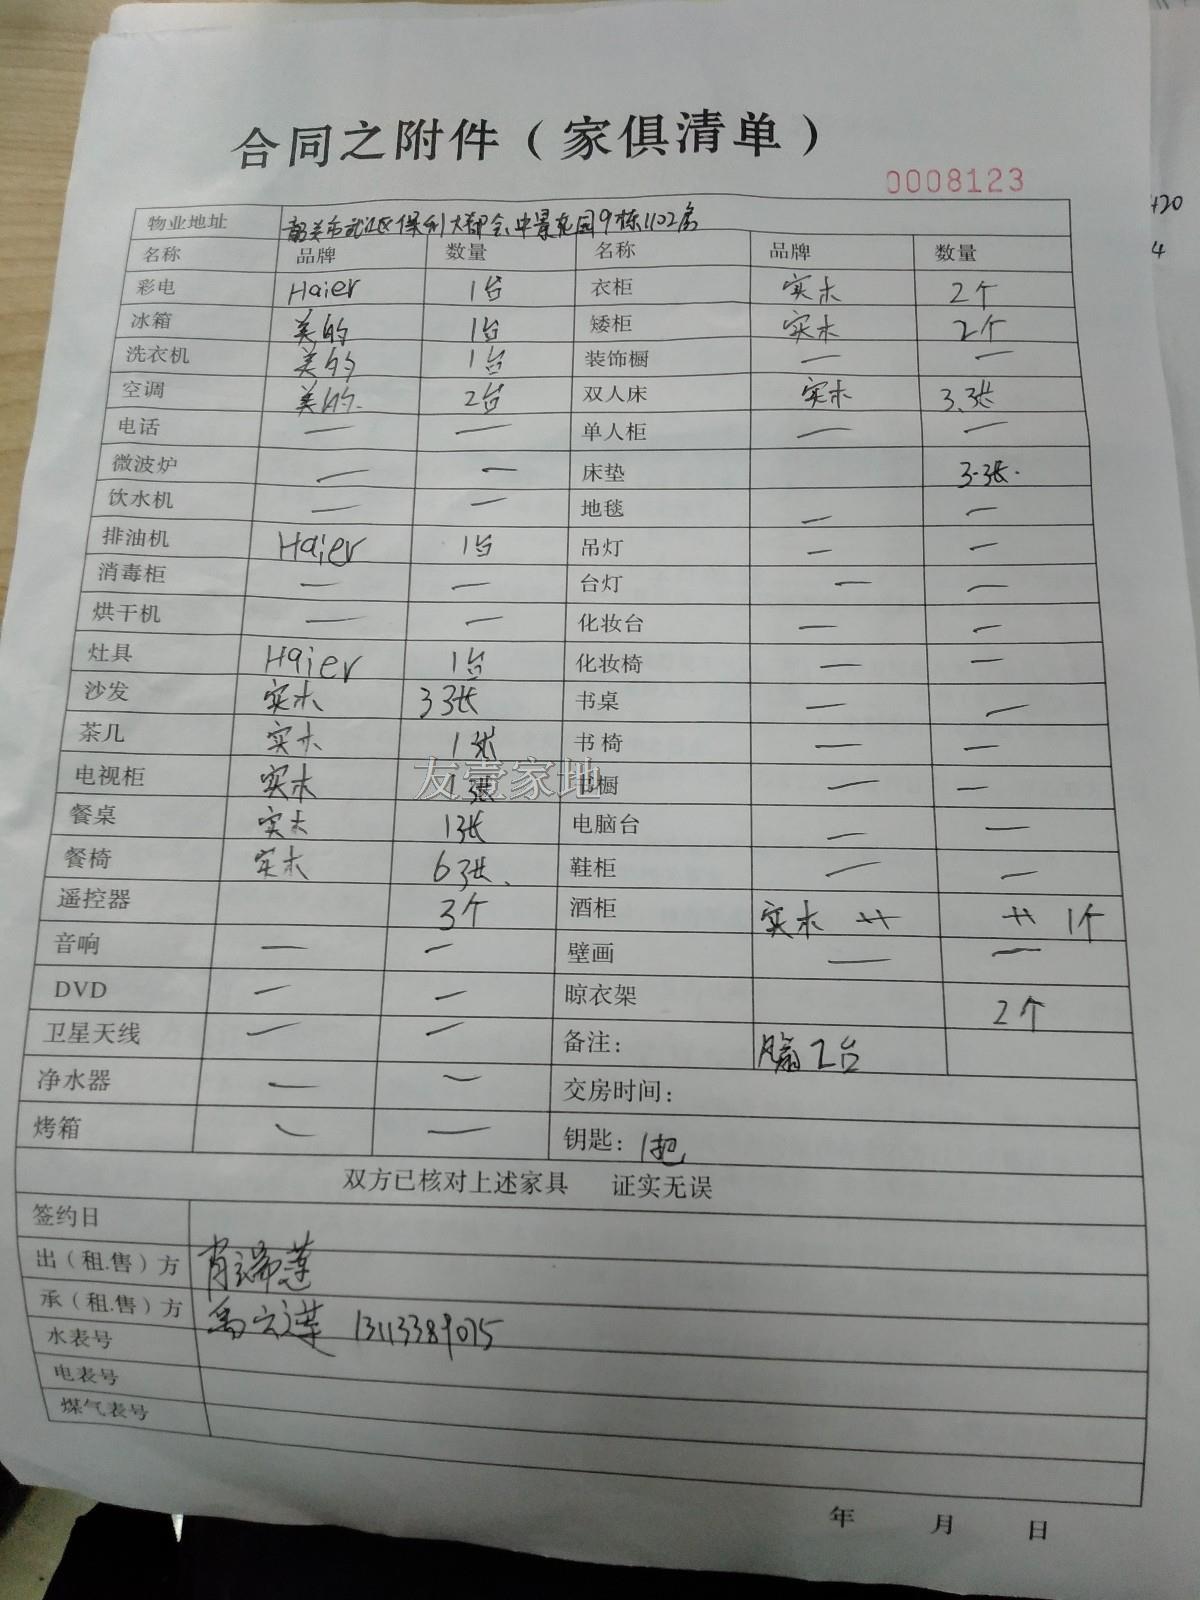 合同之附件（家俱清单）
0008123
物业地址 韶关市武江区保利大都会中景花园9栋1102房
名称 品牌 数量 名称 品牌 数量
彩电 Haier 1台 衣柜 实木 2个
冰箱 美的 1台 矮柜 实木 2个
洗衣机 美的 1台 装饰橱 — —
空调 美的. 2台 双人床 实木 3.张
电话 — — 单人柜 — —
微波炉 — — 床垫 3.张.
饮水机 — — 地毯 — —
排油机 Haier 1台 吊灯 — —
消毒柜 — — 台灯 — —
烘干机 — — 化妆台 — —
灶具 Haier 1台 化妆椅 — —
沙发 实木 3张 书桌 — —
茶几 实木 1张 书椅 — —
电视柜 实木 1张 书橱 — —
餐桌 实木 1张 电脑台 — —
餐椅 实木 6张、 鞋柜 — —
遥控器 3个 酒柜 实木 1个
音响 — — 壁画 — —
DVD — — 晾衣架 2个
卫星天线 — — 备注: 2台
净水器 — — 交房时间:
烤箱 — — 钥匙: 1把
双方已核对上述家具 证实无误
签约日
出（租.售）方 肖瑞莲
承（租.售）方 13113389075
水表号
电表号
煤气表号
年 月 日
友壹家地
420
4